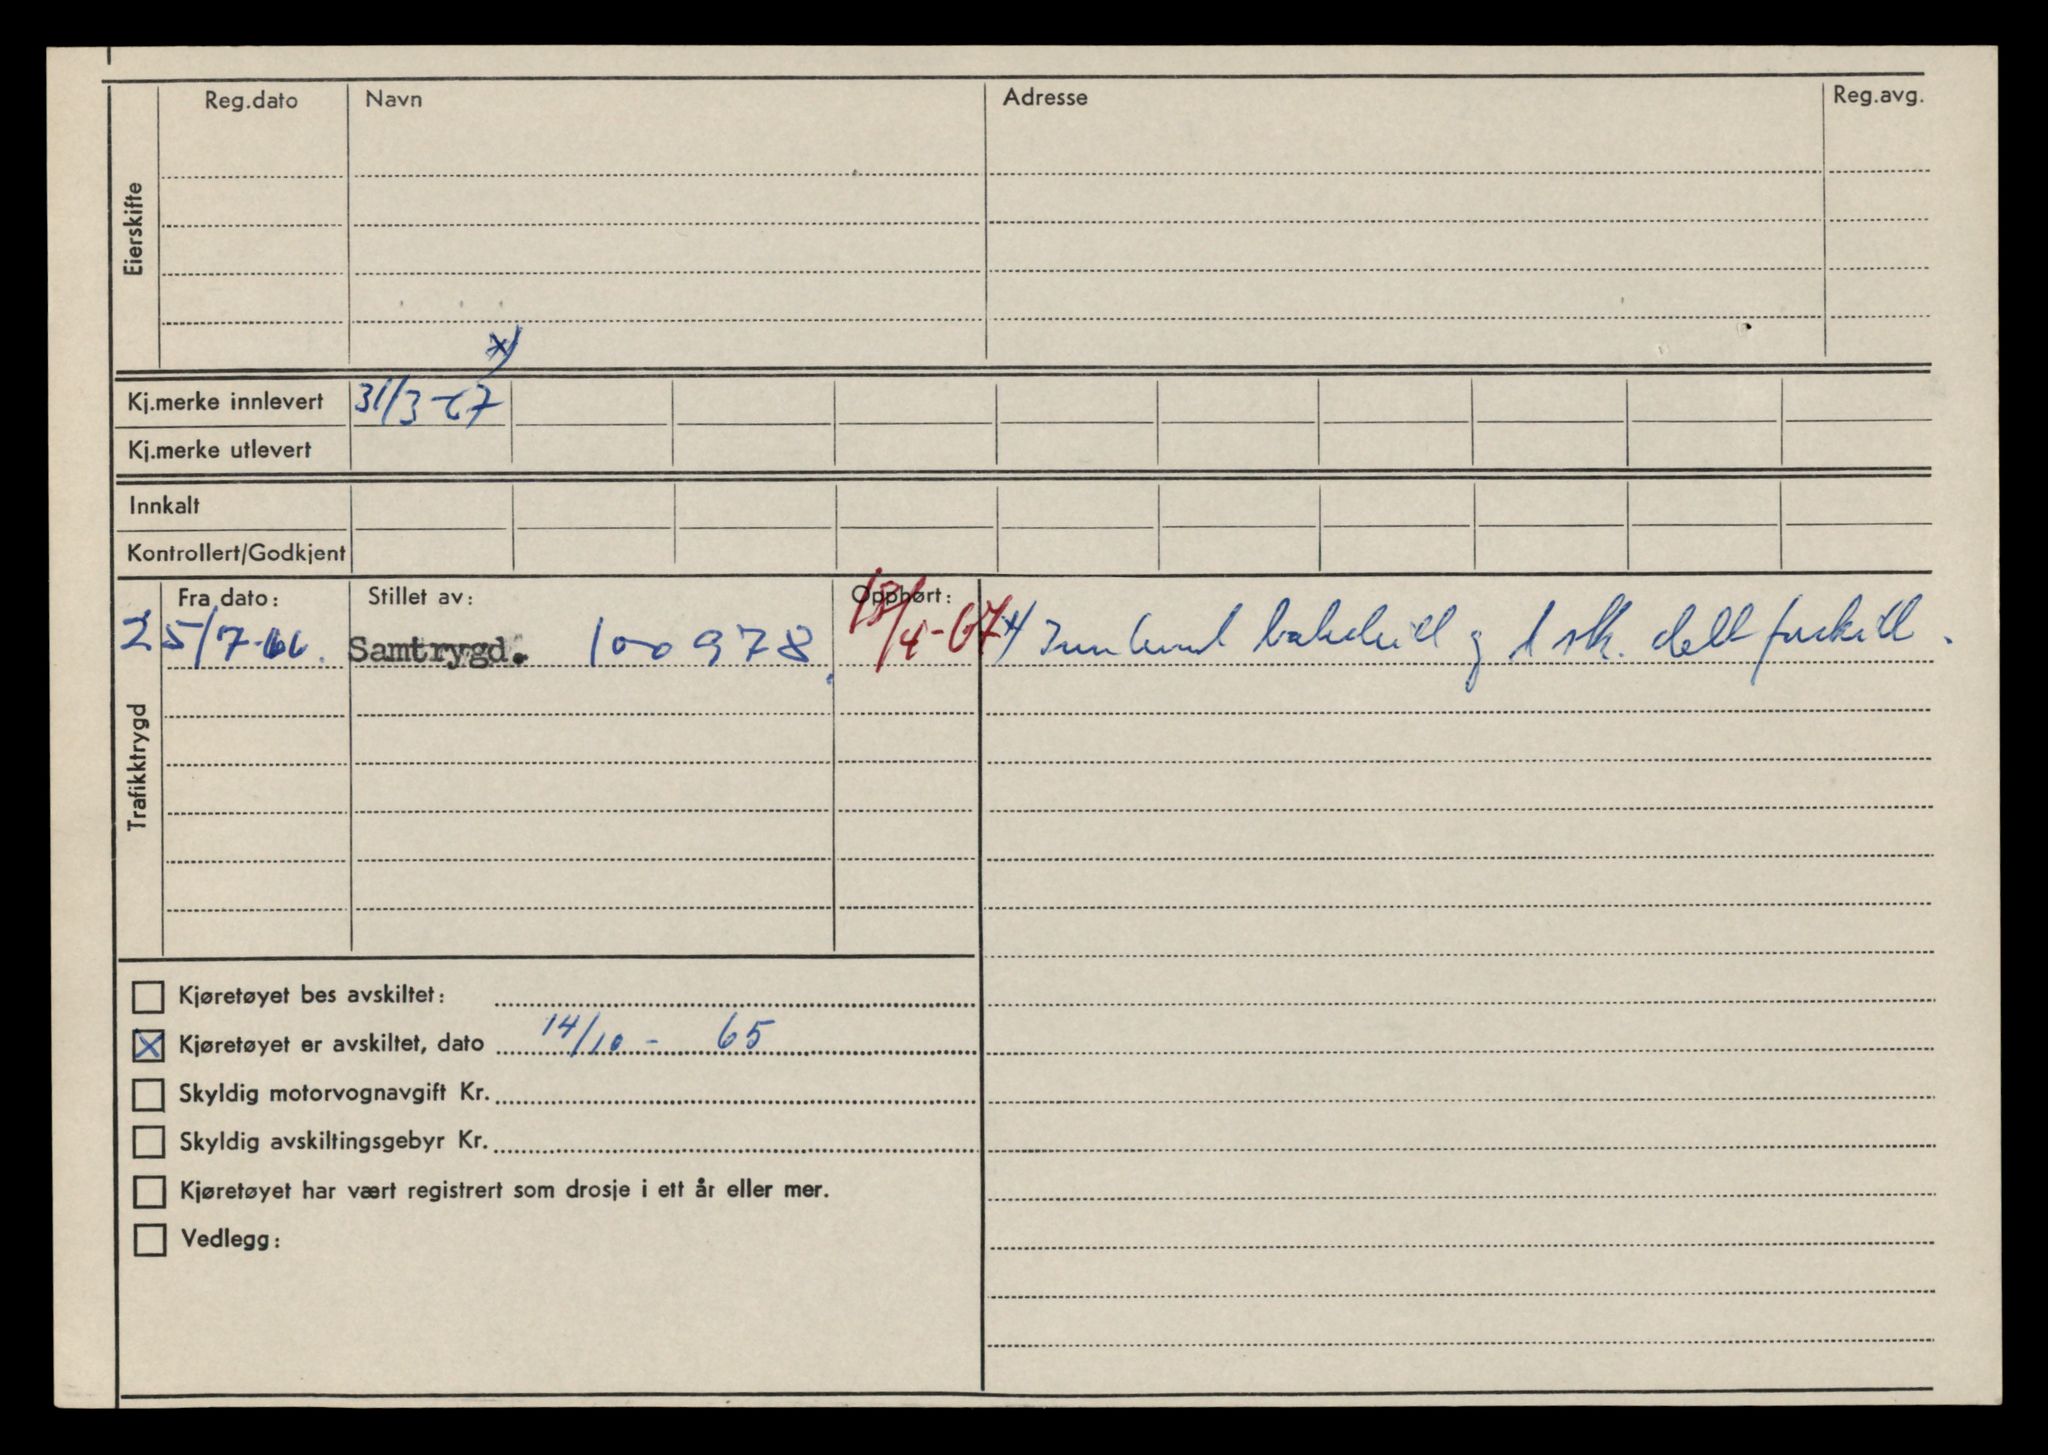 Eierskifte
Reg.dato Navn Adresse Reg.avg.
x)
Kj.merke innlevert 31/3-67
Kj.merke utlevert
Innkalt
Kontrollert/Godkjent
Trafikktrygd
Fra dato: Stillet av: Opphørt:
25/7-66. Samtrygd. 100978. /4-67 x) Innlevert bakskilt og 1 stk. delt forskilt.
Kjøretøyet bes avskiltet:
Kjøretøyet er avskiltet, dato 14/10 - 65
Skyldig motorvognavgift Kr.
Skyldig avskiltingsgebyr Kr.
Kjøretøyet har vært registrert som drosje i ett år eller mer.
Vedlegg: